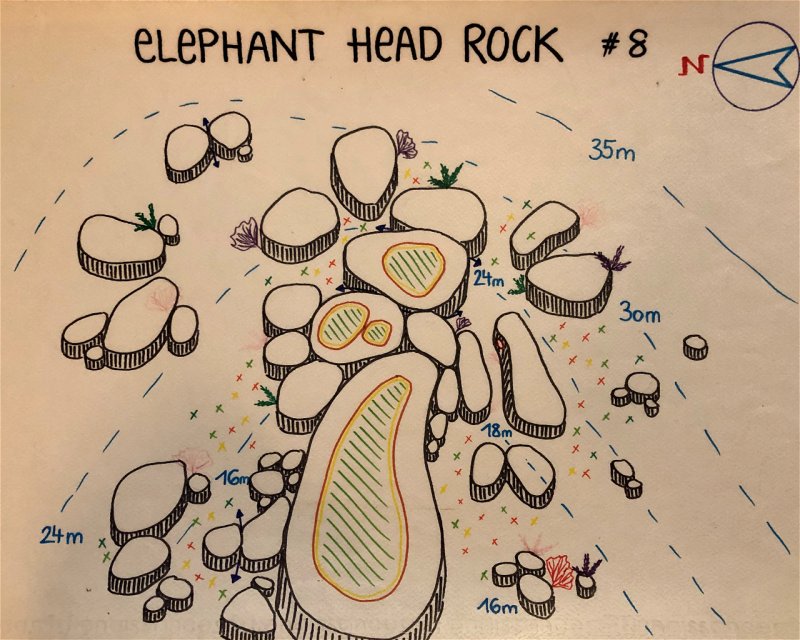 eLePHANT HeAD ROCK #8
N
35m
24m
30m
18m
16m
24m
16m